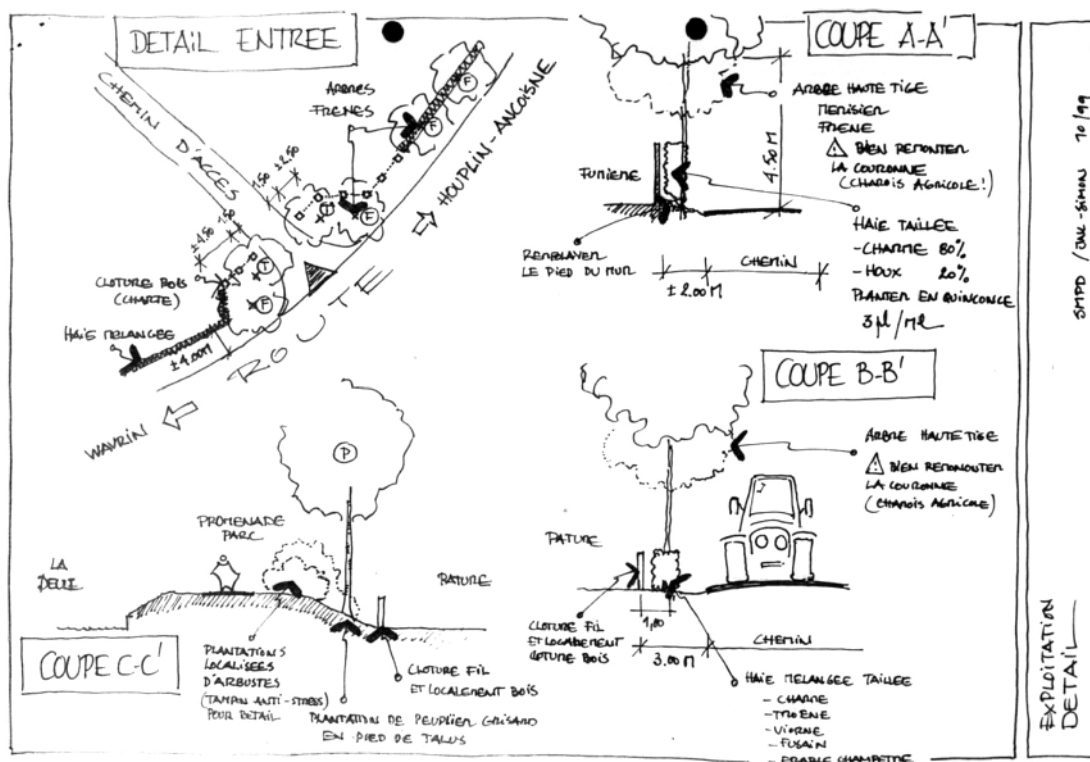 DETAIL ENTREE
CHEMIN
D'ACCES
ARBRES
FRENES
F
F
F
T
T
F
HOUPLIN-ANCOISNE
±2.50
1.50
1.50
±4.50
CLOTURE BOIS
(CHARTE)
HAIE MELANGEE
±4.00M
ROUTE
WAVRIN
COUPE A-A'
ARBRE HAUTE TIGE
MERISIER
FRENE
BIEN REMONTER
LA COURONNE
(CHAROIS AGRICOLE!)
4.50M
FUMIERE
REMBLAYER
LE PIED DU MUR
CHEMIN
±2.00M
HAIE TAILLEE
-CHARME 80%
-HOUX 20%
PLANTER EN QUINCONCE
3pl/ml
COUPE B-B'
ARBRE HAUTE TIGE
BIEN REMONTER
LA COURONNE
(CHAROIS AGRICOLE)
PATURE
CLOTURE FIL
ET LOCALEMENT
CLOTURE BOIS
1,00
3.00M
CHEMIN
HAIE MELANGEE TAILLEE
- CHARME
- TROENE
- VIORNE
- FUSAIN
- ERABLE CHAMPETRE
P
PROMENADE
PARC
LA
DEULE
PATURE
COUPE C-C'
PLANTATIONS
LOCALISEES
D'ARBUSTES
(TAMPON ANTI-STRESS)
POUR BETAIL
CLOTURE FIL
ET LOCALEMENT BOIS
PLANTATION DE PEUPLIER GRISARD
EN PIED DE TALUS
SMPD / JNC-SIMON 10/99
EXPLOITATION
DETAIL